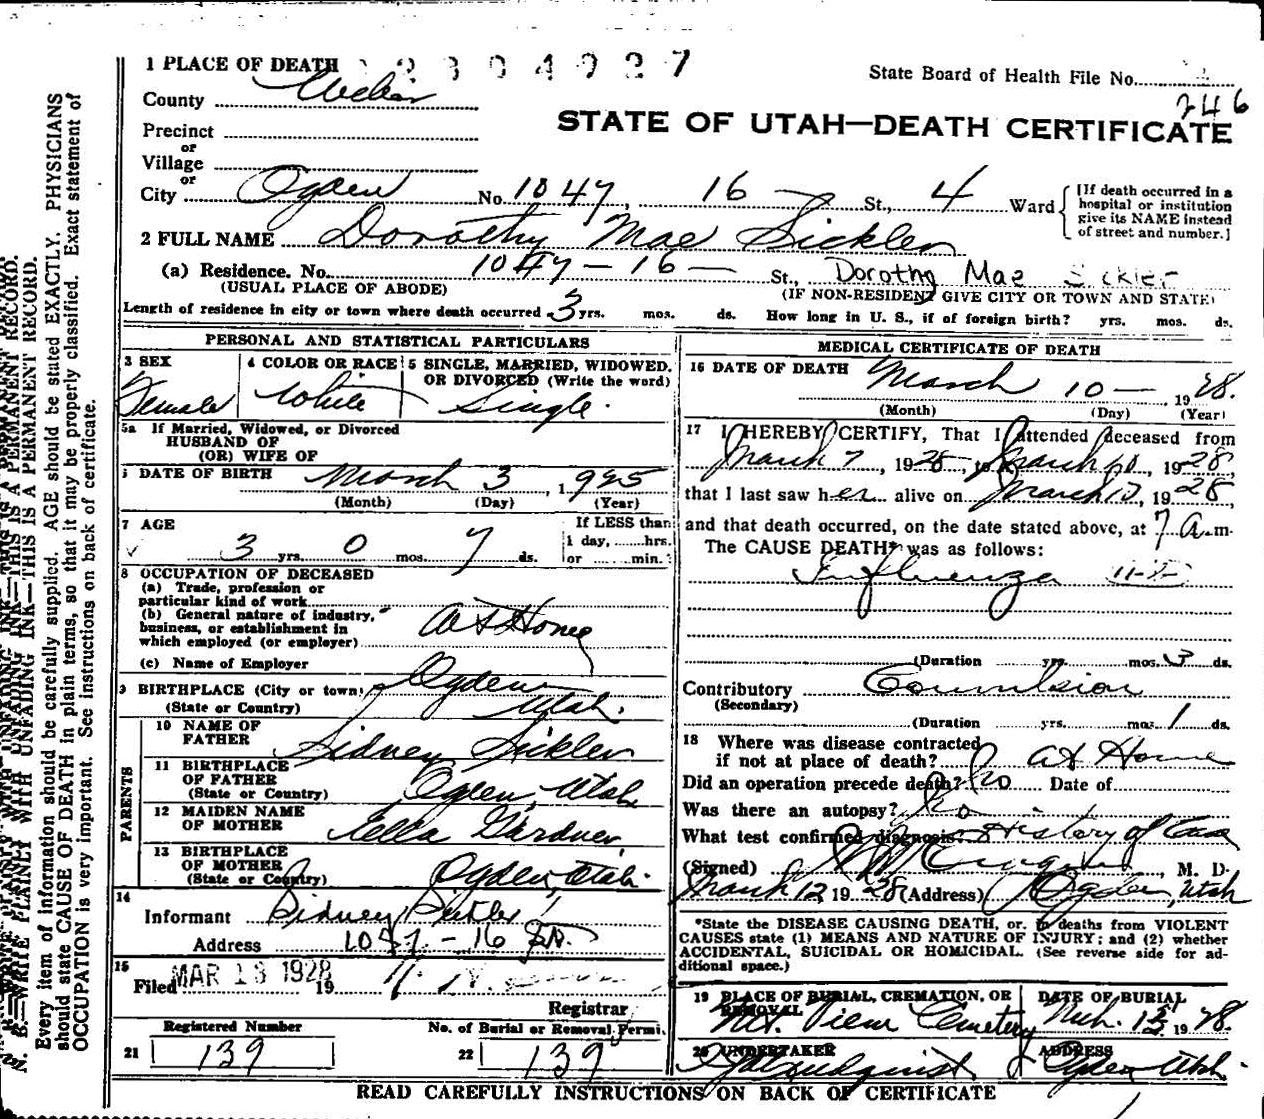 1 PLACE OF DEATH 2304927
State Board of Health File No.
246
County Weber
STATE OF UTAH—DEATH CERTIFICATE
Precinct
or
Village
or
City Ogden No. 1047, 16 St., 4 Ward
[If death occurred in a
hospital or institution
give its NAME instead
of street and number.]
2 FULL NAME Dorothy Mae Sickler
(a) Residence. No. 1047 – 16 – St., Dorothy Mae Sickler
(USUAL PLACE OF ABODE) (IF NON-RESIDENT GIVE CITY OR TOWN AND STATE)
Length of residence in city or town where death occurred 3 yrs. mos. ds. How long in U. S., if of foreign birth? yrs. mos. ds.
PERSONAL AND STATISTICAL PARTICULARS
3 SEX
Female
4 COLOR OR RACE
White
5 SINGLE, MARRIED, WIDOWED,
OR DIVORCED (Write the word)
Single.
5a If Married, Widowed, or Divorced
HUSBAND OF
(OR) WIFE OF
DATE OF BIRTH March 3, 1925
(Month) (Day) (Year)
7 AGE
3 yrs. 0 mos. 7 ds.
If LESS than
1 day, hrs.
or min.
8 OCCUPATION OF DECEASED
(a) Trade, profession or
particular kind of work
(b) General nature of industry,
business, or establishment in
which employed (or employer) At Home
(c) Name of Employer
9 BIRTHPLACE (City or town) Ogden
(State or Country) Utah.
PARENTS
10 NAME OF
FATHER Sidney Sickler
11 BIRTHPLACE
OF FATHER
(State or Country) Ogden, Utah
12 MAIDEN NAME
OF MOTHER Ella Gardner
13 BIRTHPLACE
OF MOTHER
(State or Country) Ogden, Utah.
14
Informant Sidney
Address 1047 – 16 St.
15
Filed MAR 13 1928 19
Registrar
Registered Number
21 139
No. of Burial or Removal Permit
22 139
MEDICAL CERTIFICATE OF DEATH
16 DATE OF DEATH March 10 – 1928.
(Month) (Day) (Year)
17 I HEREBY CERTIFY, That I attended deceased from
March 7, 1928, to March 10, 1928,
that I last saw her alive on March 10, 1928,
and that death occurred, on the date stated above, at 7 a.m.
The CAUSE DEATH* was as follows:
Influenza
(Duration yrs. mos. 3 ds.
Contributory Convulsion
(Secondary)
(Duration yrs. mos. 1 ds.
18 Where was disease contracted
if not at place of death? At Home
Did an operation precede death? No Date of
Was there an autopsy? No
What test confirmed diagnosis? History of Case
(Signed) , M. D.
March 12 1928 (Address) Ogden, Utah
*State the DISEASE CAUSING DEATH, or, in deaths from VIOLENT
CAUSES state (1) MEANS AND NATURE OF INJURY; and (2) whether
ACCIDENTAL, SUICIDAL OR HOMICIDAL. (See reverse side for ad-
ditional space.)
19 PLACE OF BURIAL, CREMATION, OR
REMOVAL
Mt. View Cemetery
DATE OF BURIAL
Mch. 13 1928.
20 UNDERTAKER
Lindquist
ADDRESS
Ogden Utah.
READ CAREFULLY INSTRUCTIONS ON BACK OF CERTIFICATE
N. B.—WRITE PLAINLY WITH UNFADING INK—THIS IS A PERMANENT RECORD.
Every item of information should be carefully supplied. AGE should be stated EXACTLY. PHYSICIANS
should state CAUSE OF DEATH in plain terms, so that it may be properly classified. Exact statement of
OCCUPATION is very important. See instructions on back of certificate.